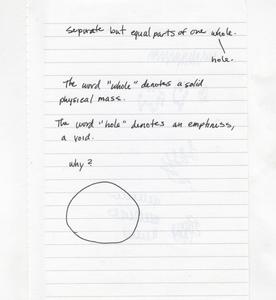 separate but equal parts of one whole.
hole.
The word "whole" denotes a solid
physical mass.
The word "hole" denotes an emptiness,
a void.
why?